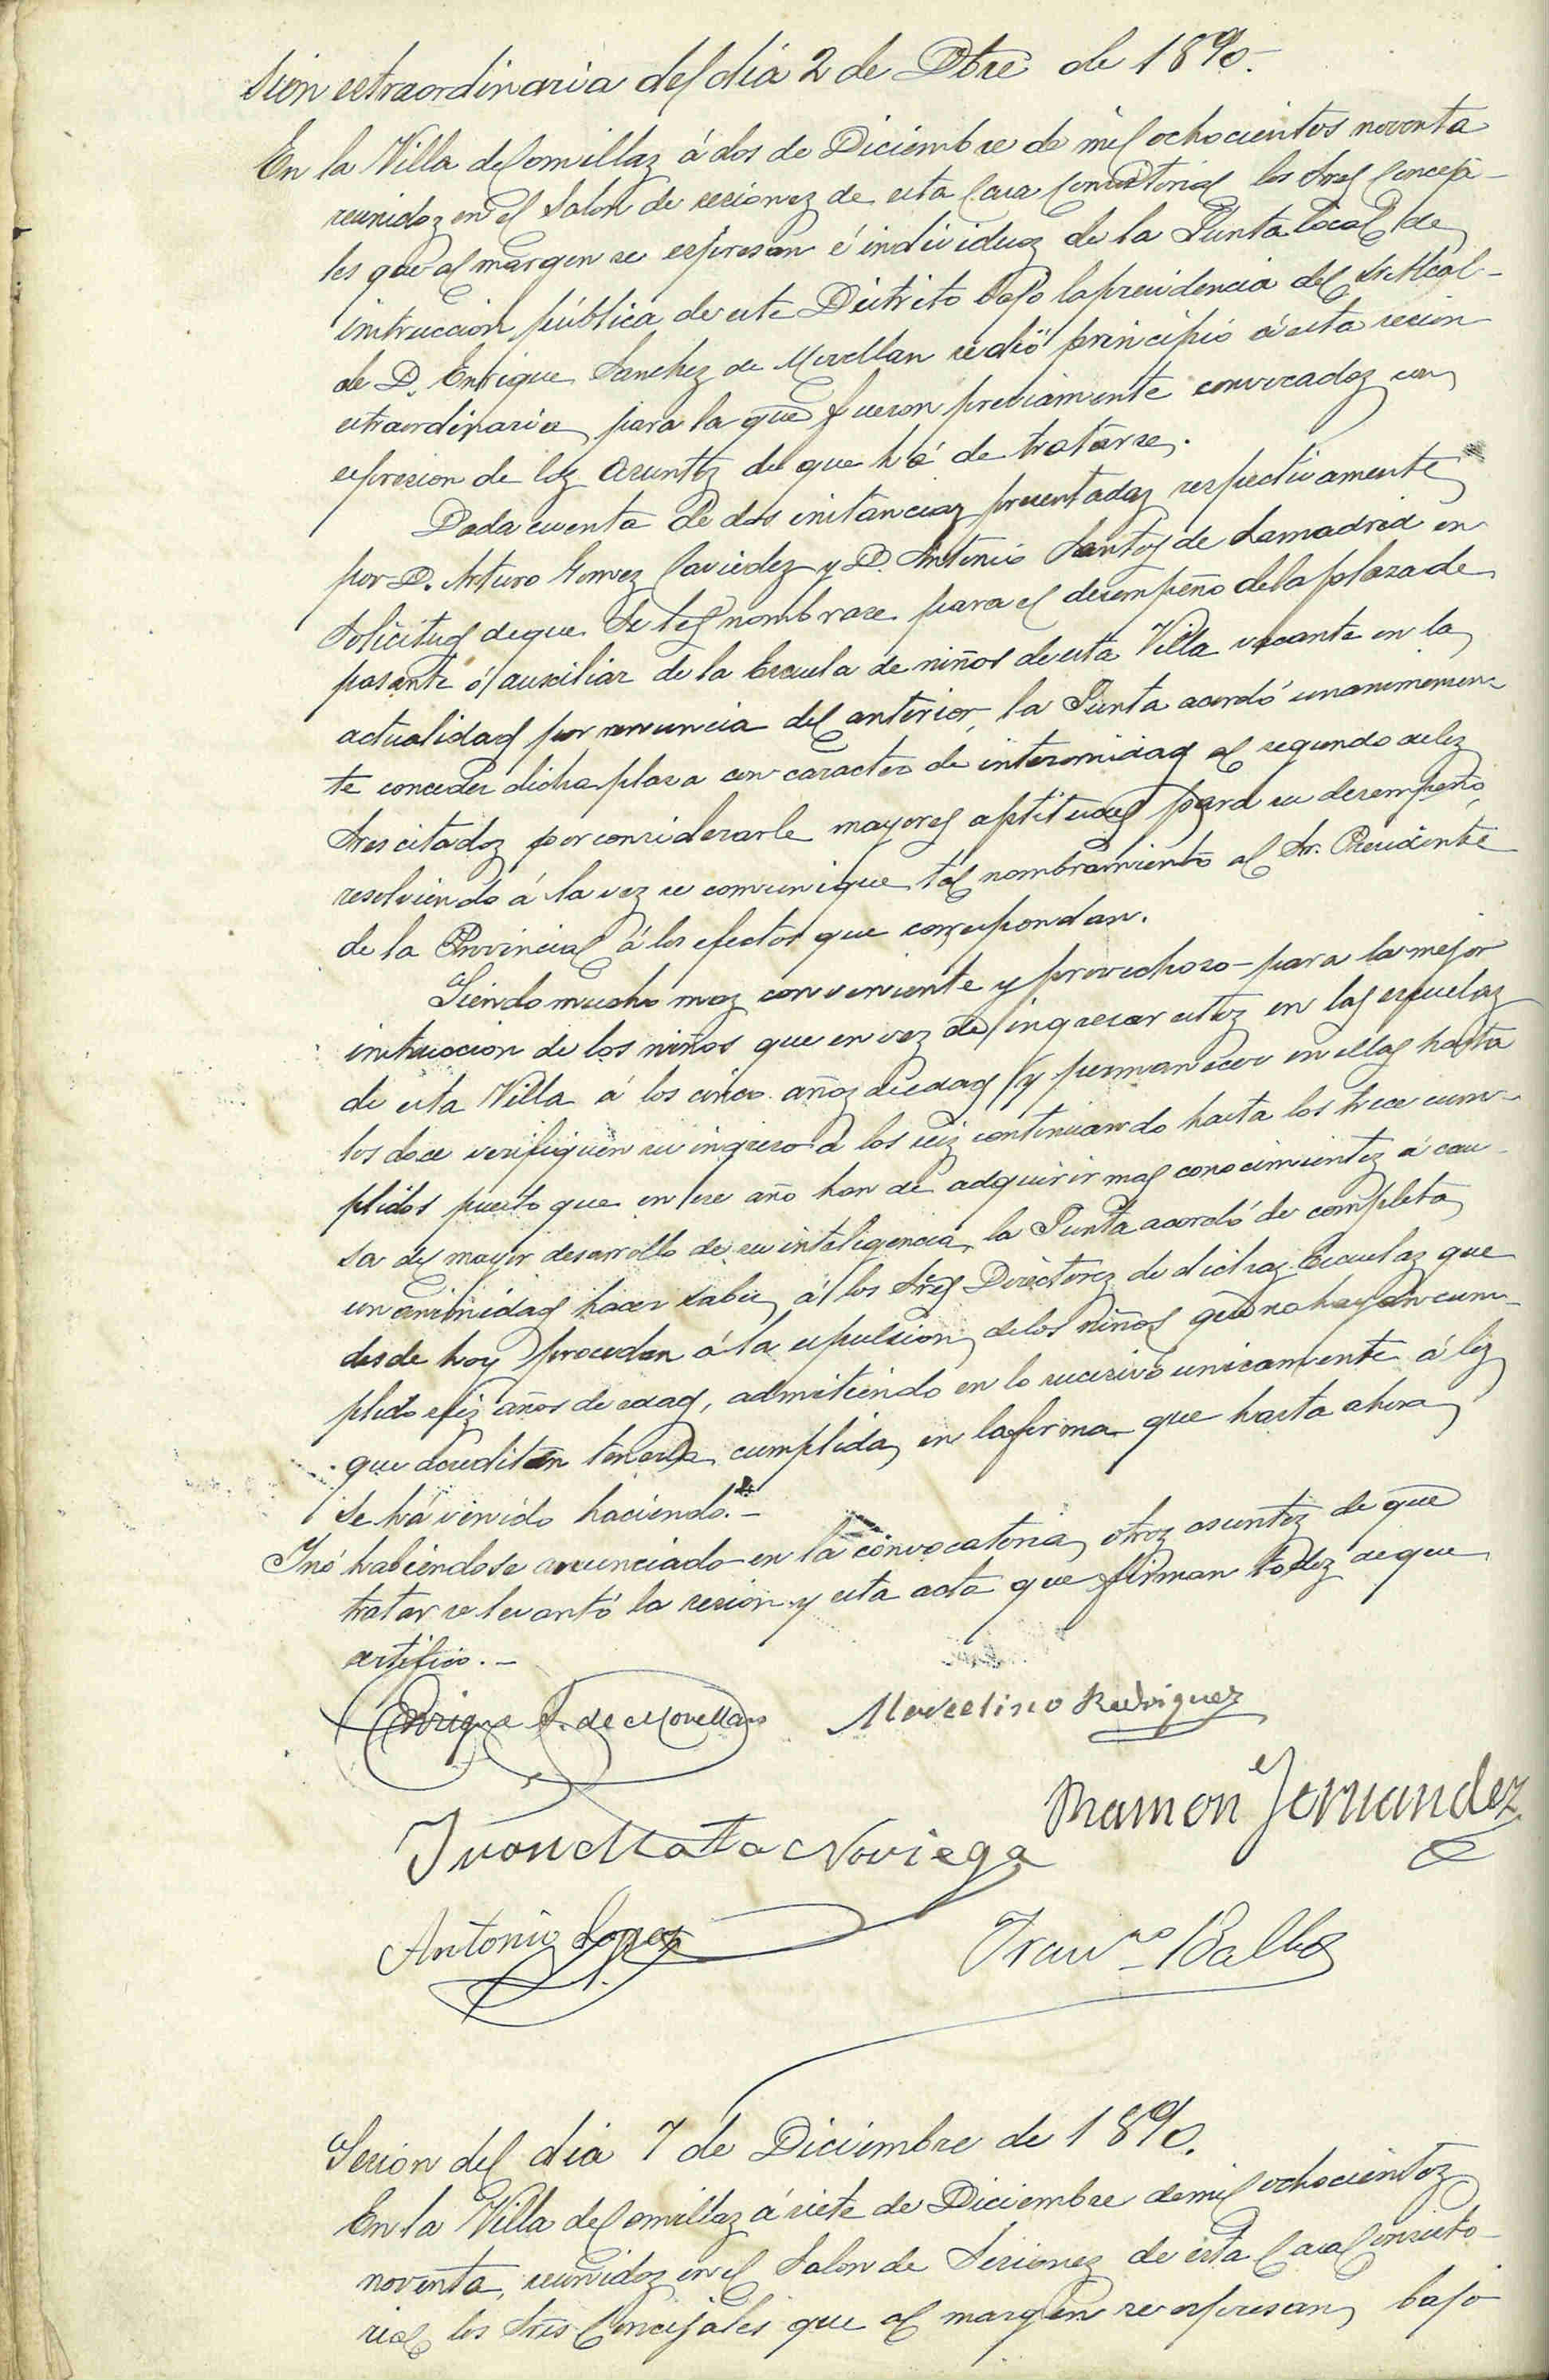 sion extraordinaria del dia 2 de Dbre de 1890.-
En la Villa de Comillas á dos de Diciembre de mil ochocientos noventa
reunidos en el Salon de sesiones de esta Casa Consistorial los Sres Conceja-
les que al margen se espresan é individuos de la Junta local de
instruccion pública de este Distrito bajo la presidencia del Sr. Alcal-
de D. Enrique Sanchez de Movellan se dió principio á esta sesion
estraordinaria para la que fueron previamente convocados con
espresion de los asuntos de que há de tratarse.
Dada cuenta de dos instancias presentadas respectivamente
por D. Arturo Gomez Caviedes y D. Antonio Santos de Lamadrid en
solicitud de que se les nombrase para el desempeño de la plaza de
pasante ó auxiliar de la Escuela de niños de esta Villa vacante en la
actualidad por renuncia del anterior, la Junta acordó unanimemen-
te conceder dicha plaza con caracter de interinidad al segundo de los
Sres citados por considerarle mayores aptitudes para su desempeño,
resolviendo á la vez se comunique tal nombramiento al Sr. Presidente
de la Provincial á los efectos que correspondan.
Siendo mucho mas conveniente y provechoso para la mejor
instruccion de los niños que en vez de ingresar estos en las escuelas
de esta Villa á los cinco años de edad y permanecer en ellas hasta
los doce verifiquen su ingreso á los seis continuando hasta los trece cum-
plidos puesto que en ese año han de adquirir mas conocimientos á cau-
sa del mayor desarrollo de su inteligencia, la Junta acordó de completa
unanimidad hacer saber á los Sres Directores de dichas Escuelas que
desde hoy procedan á la espulsion de los niños que no hayan cum-
plido seis años de edad, admitiendo en lo sucesivo unicamente á los
que acrediten tenerla cumplida en la forma que hasta ahora
se há venido haciendo.-
Y nó habiéndose anunciado en la convocatoria otros asuntos de que
tratar se levantó la sesion y esta acta que firman todos de que
certifico.-
Enrique S. de Movellan Marcelino Rodriguez
Ramon Fernandez
Juan Mata Noriega
Antonio Lopez Franco Balbas
Sesion del dia 7 de Diciembre de 1890.
En la Villa de Comillas á siete de Diciembre de mil ochocientos
noventa, reunidos en el Salon de Sesiones de esta Casa Consisto-
rial los Sres Concejales que al margen se espresan bajo